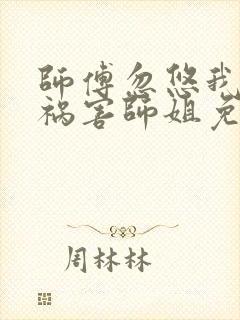 師傅忽悠我
祸害師姐免
周林林